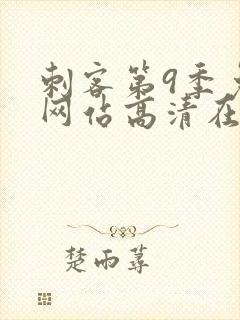 刺客第9季
网佔高清在
楚雨荨